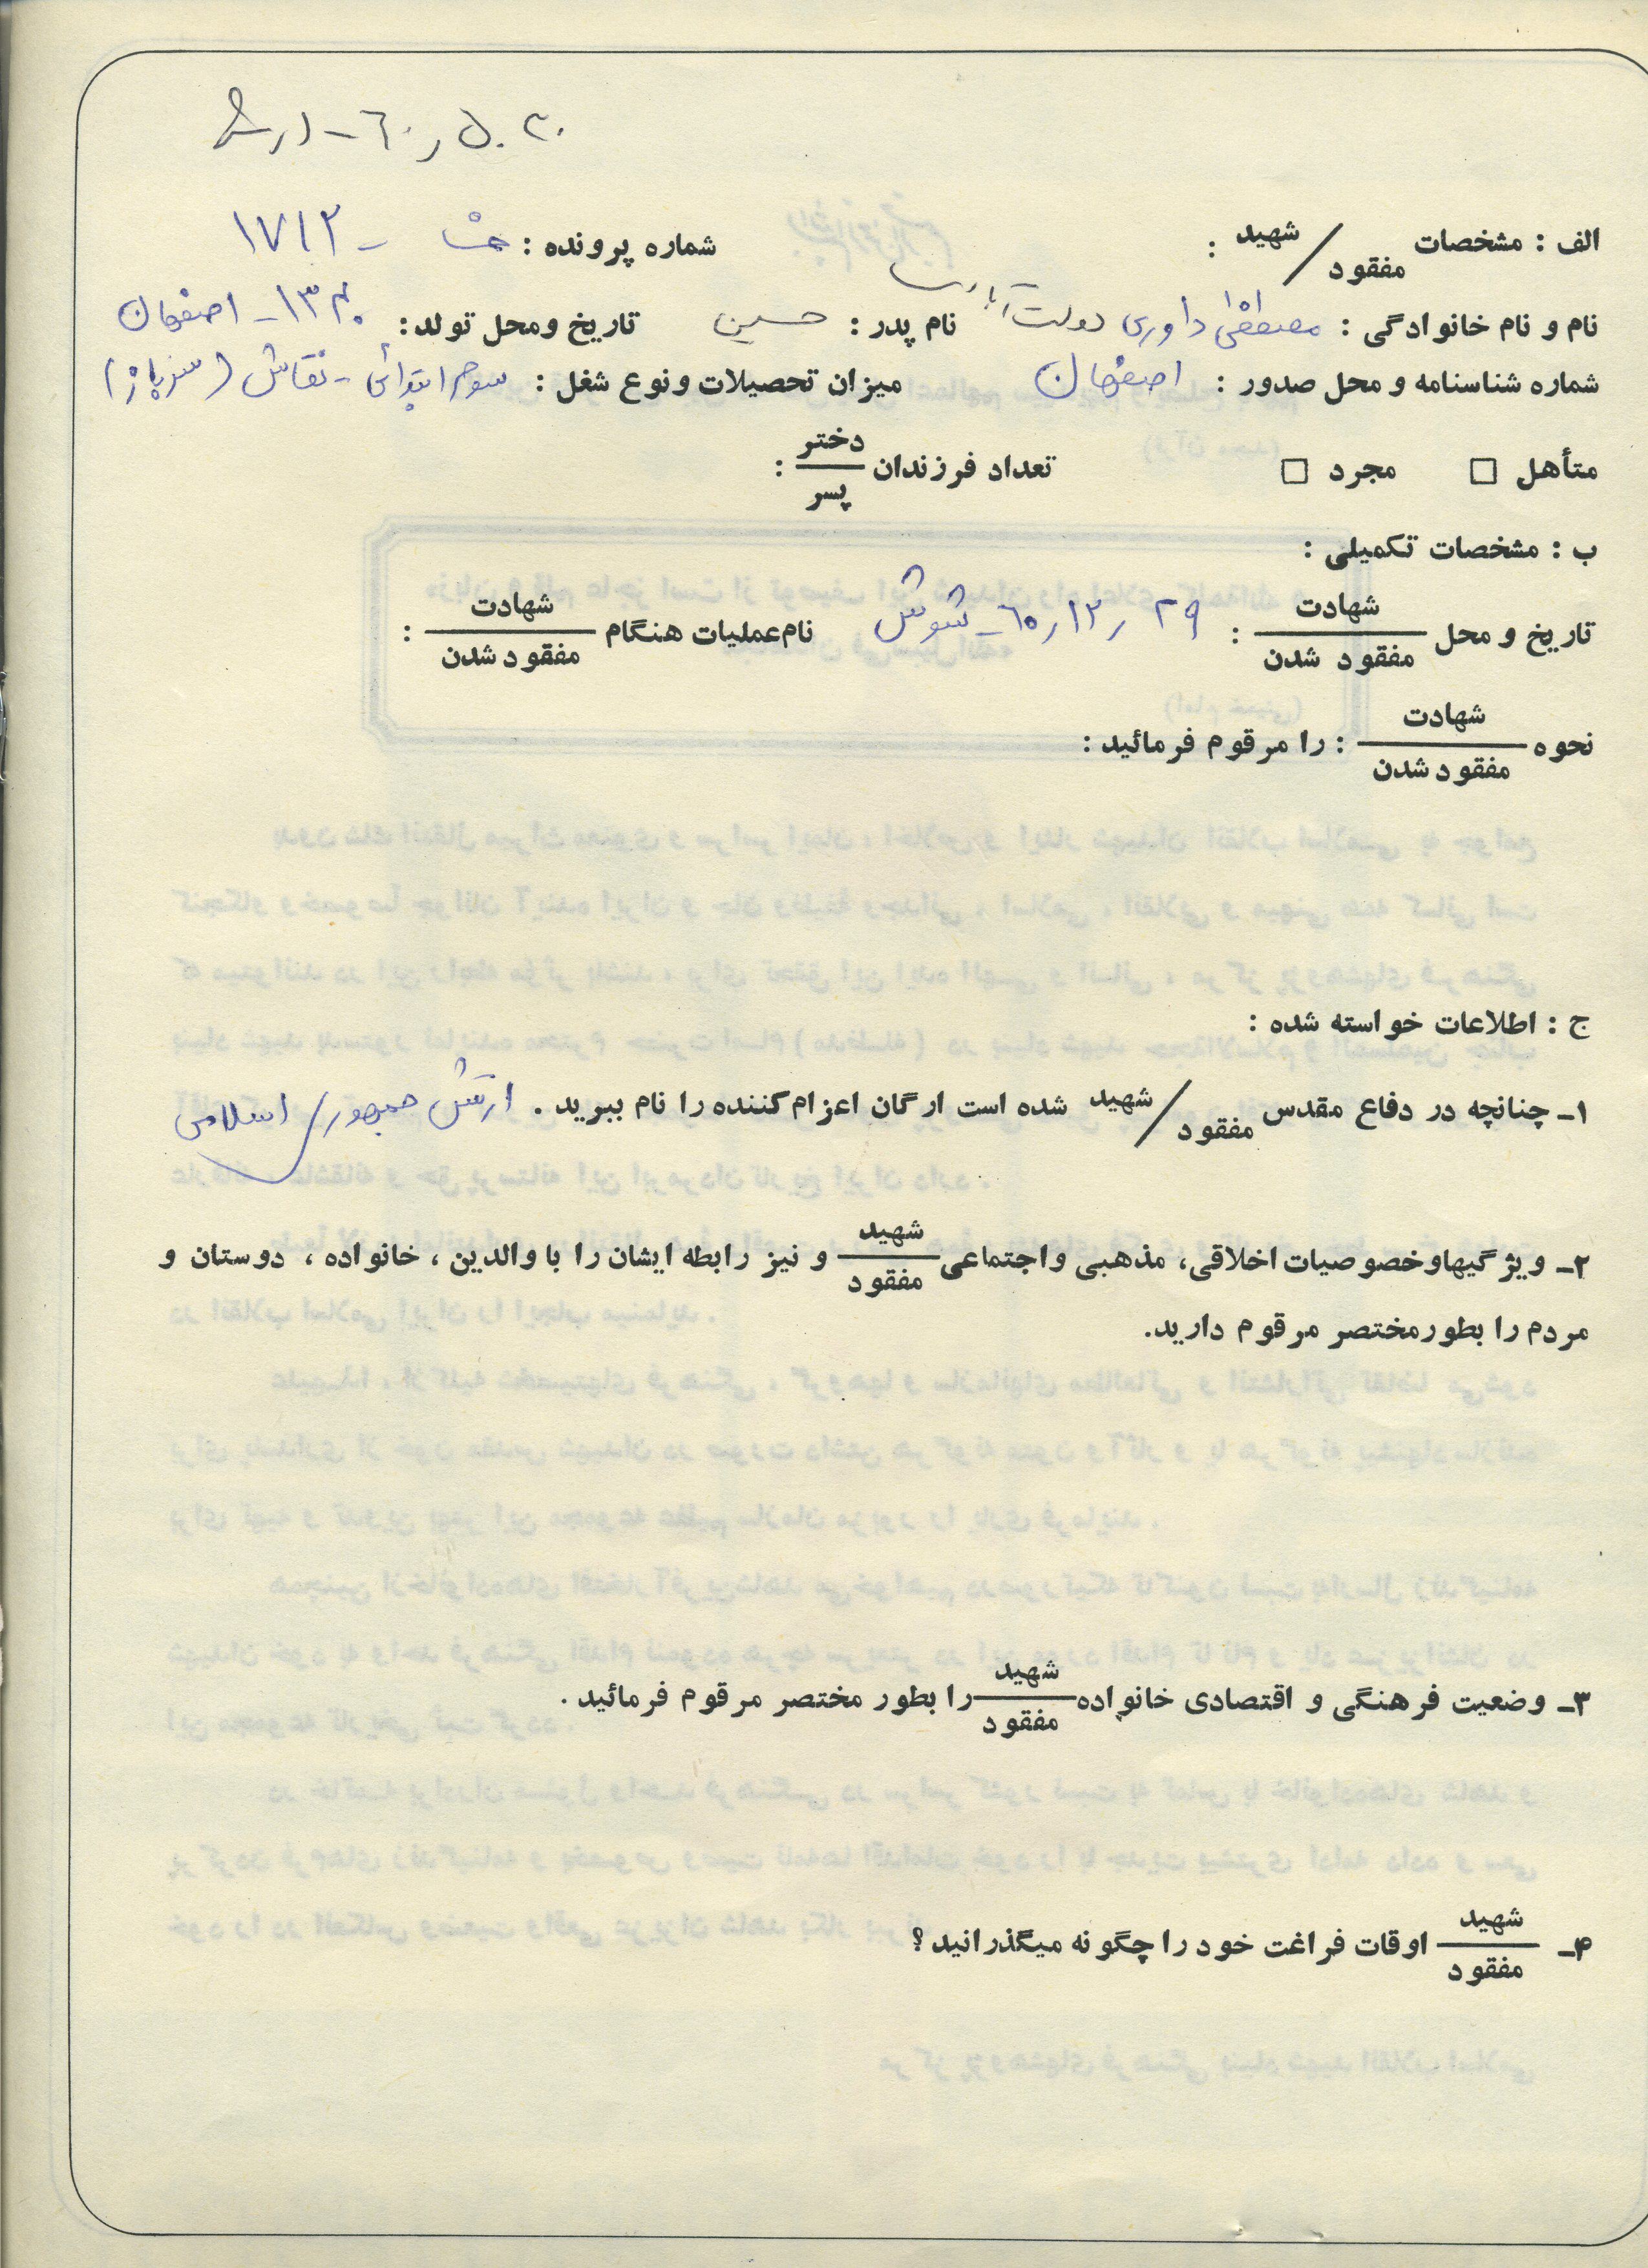 الف : مشخصات شهید / مفقود : شماره پرونده : ۱۷۱۲ -
نام و نام خانوادگی : مصطفی داوری دولت آبادی نام پدر : حسین تاریخ ومحل تولد : ۱۳۴۰ - اصفهان
شماره شناسنامه و محل صدور : اصفهان میزان تحصیلات ونوع شغل : سوم ابتدائی - نقاش (سرباز)
متأهل □ مجرد □ تعداد فرزندان دختر / پسر :
ب : مشخصات تکمیلی :
تاریخ و محل شهادت / مفقود شدن : ۲۹ ر ۱۲ ر ۶۰ - شوش نام عملیات هنگام شهادت / مفقود شدن :
نحوه شهادت / مفقود شدن : را مرقوم فرمائید :
ج : اطلاعات خواسته شده :
۱ـ چنانچه در دفاع مقدس شهید / مفقود شده است ارگان اعزام کننده را نام ببرید . ارتش جمهوری اسلامی
۲ـ ویژگیهاوخصوصیات اخلاقی، مذهبی واجتماعی شهید / مفقود و نیز رابطه ایشان را با والدین ، خانواده ، دوستان و
مردم را بطورمختصر مرقوم دارید.
۳ـ وضعیت فرهنگی و اقتصادی خانواده شهید / مفقود را بطور مختصر مرقوم فرمائید .
۴ـ شهید / مفقود اوقات فراغت خود را چگونه میگذرانید ؟